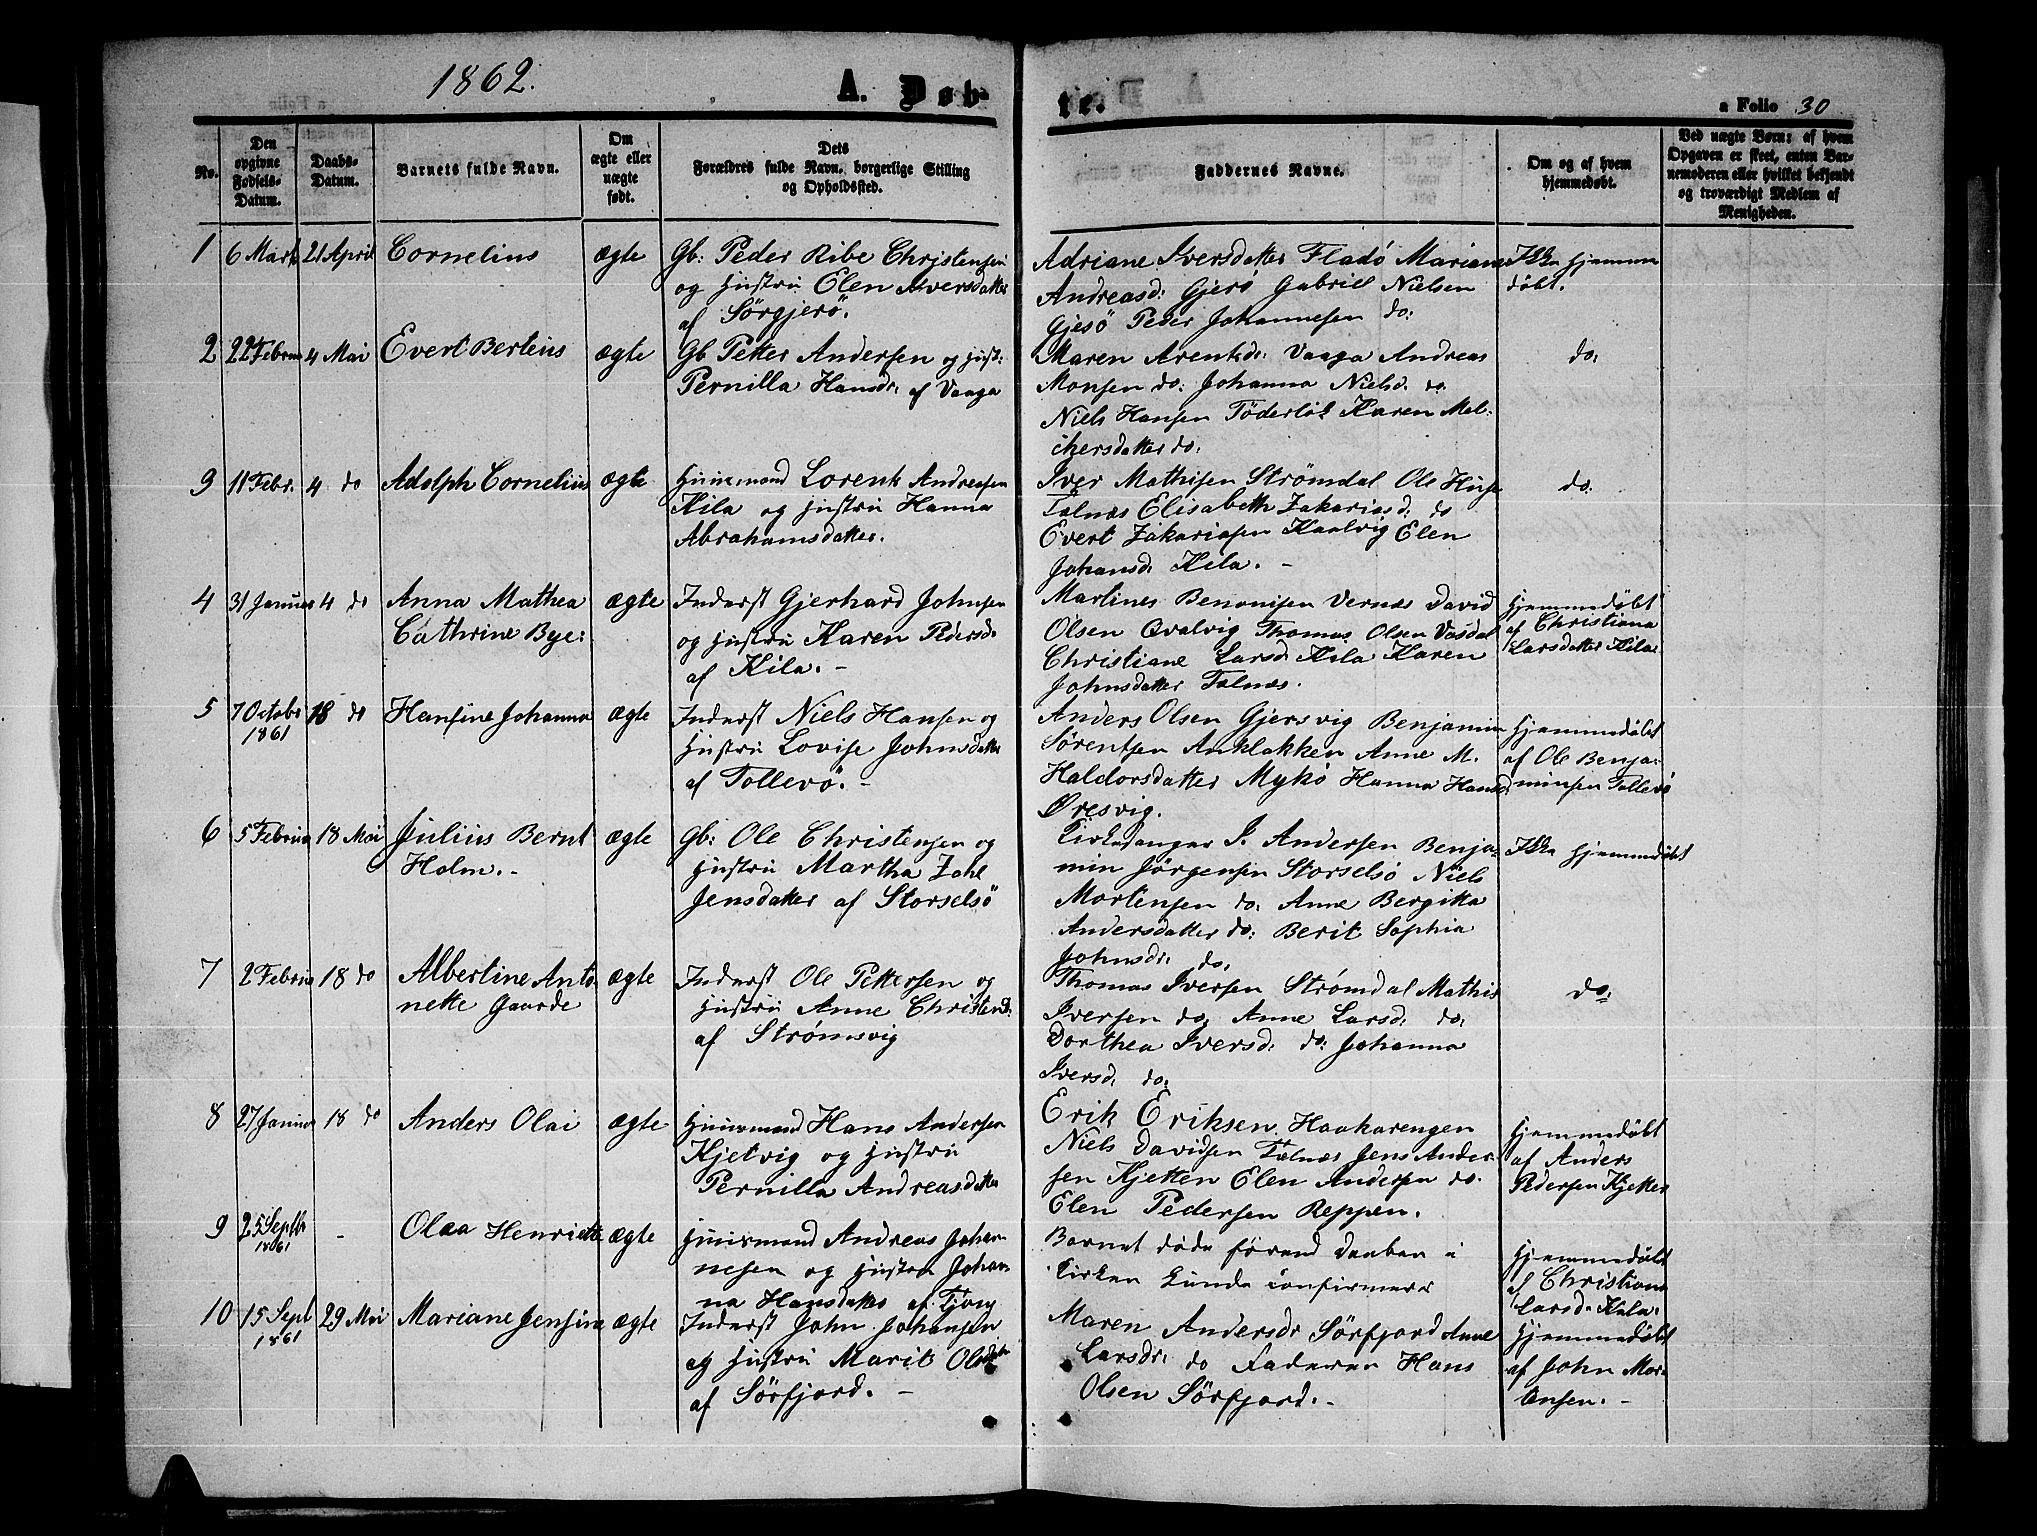 1862.
A. Døb-
te.
a Folio 30
No.
Den
opgivne
Fødsels-
Datum.
Daabs-
Datum.
Barnets fulde Navn.
Om
ægte eller
uægte
født.
Dets
Forældres fulde Navn, borgerlige Stilling
og Opholdssted.
Faddernes Navne.
Om og af hvem
hjemmedøbt.
Ved uægte Børn: af hvem
Opgaven er skeet, enten Bar-
nemoderen eller hvilket bekjendt
og troværdigt Medlem af
Menigheden.
1 6 Marts 21 April Cornelius ægte Gb: Peder Ribe Christensen
og Hustru Elen Iversdatter
af Sörgjerö.
Adriane Iversdatter Fladö Mariane
Andreasd: Gjerö Gabriel Nielsen
Gjesö Peder Johannesen do:
Ikke hjemme
döbt.
2 22 Februar 4 Mai Evert Berteus ægte Gb Petter Andersen og Hust:
Pernilla Hansdr. af Vaaga
Maren Arentsdr: Vaaga Andreas
Monsen do: Johanna Nielsd. do
Niels Hansen Töderlöt Karen Mel:
chersdatter do.
do:
3 11 Febr. 4 do Adolph Cornelius ægte Huusmand Lorents Andreasen
Kila og Hustru Hanna
Abrahamsdatter.
Iver Mathisen Strömdal Ole Huse
Telnæs Elisabeth Zakariasd: do
Evert Zakariasen Kaalvig Elen
Johansd. Kila. -
do:
4 31 Januar 4 do Anna Mathea
Cathrine Bye:
ægte Inderst Gjerhard Johnsen
og Hustru Karen Pedersd.
af Kila. -
Martines Benonisen Vernæs David
Olsen Qvalvig Thomas Olsen Vasdal
Christiane Larsd. Kila Karen
Johnsdatter Telnæs.
Hjemmedöbt
af Christiana
Larsdatter Kila
5 7 Octobr
1861
18 do Hansine Johanna ægte Inderst Niels Hansen og
Hustru Lovise Johnsdatter
af Tollevö. -
Anders Olsen Gjersvig Benjamin
Sörentsen Anklakken Anne M.
Haldorsdatter Mykö Hanna Hansd.
Øresvig.
Hjemmedöbt
af Ole Benja-
minsen Tollevö
6 5 Februar 18 Mai Julius Bernt
Holm. -
ægte Gb: Ole Christensen og
Hustru Martha Zahl
Jensdatter af Storselsö
Kirkesanger J. Andersen Benja-
min Jörgensen Storselsö Niels
Mortensen do: Anne Bergitta
Andersdatter do: Berit Sophia
Johnsdr. do.
Ikke hjemmedöbt
7 2 Februar 18 do Albertine Anto
nette Gaarde
ægte Inderst Ole Pettersen og
Hustru Anne Christensd:
af Strømsvig
Thomas Iversen Strømdal Mathis
Iversen do, Anne Larsd. do:
Dorthea Iversd: do: Johanna
Iversd, do:
do:
8 27 Januar 18 do Anders Olai ægte Huusmand Hans Andersen
Kjetvig og Hustru
Pernilla Andreasdatter
Erik Eriksen Haakarengen
Niels Davidsen Telnæs Jens Ander-
sen Kjetten Elen Andersen do.
Elen Pedersen Reppen.
Hjemmedöbt
af Anders
Pedersen Kjetten
9 25 Septbr
1861
- Olaa Henriette ægte Huusmand Andreas Johan
nesen og Hustru Johan
na Hansdatter af Tjong
Barnet döde förend Daaben i
Kirken kunde confirmeres
Hjemmedöbt
af Christiana
Larsd. Kila.
10 15 Sept
1861
29 Mai Mariane Jensine ægte Inderst John Johansen
og Hustru Marit Olsdatter
af Sörfjord. -
Maren Andersdr Sörfjord Anne
Larsdr: do Faderen Hans
Olsen Sörfjord. -
Hjemmedöbt
af John Mor-
tensen. -